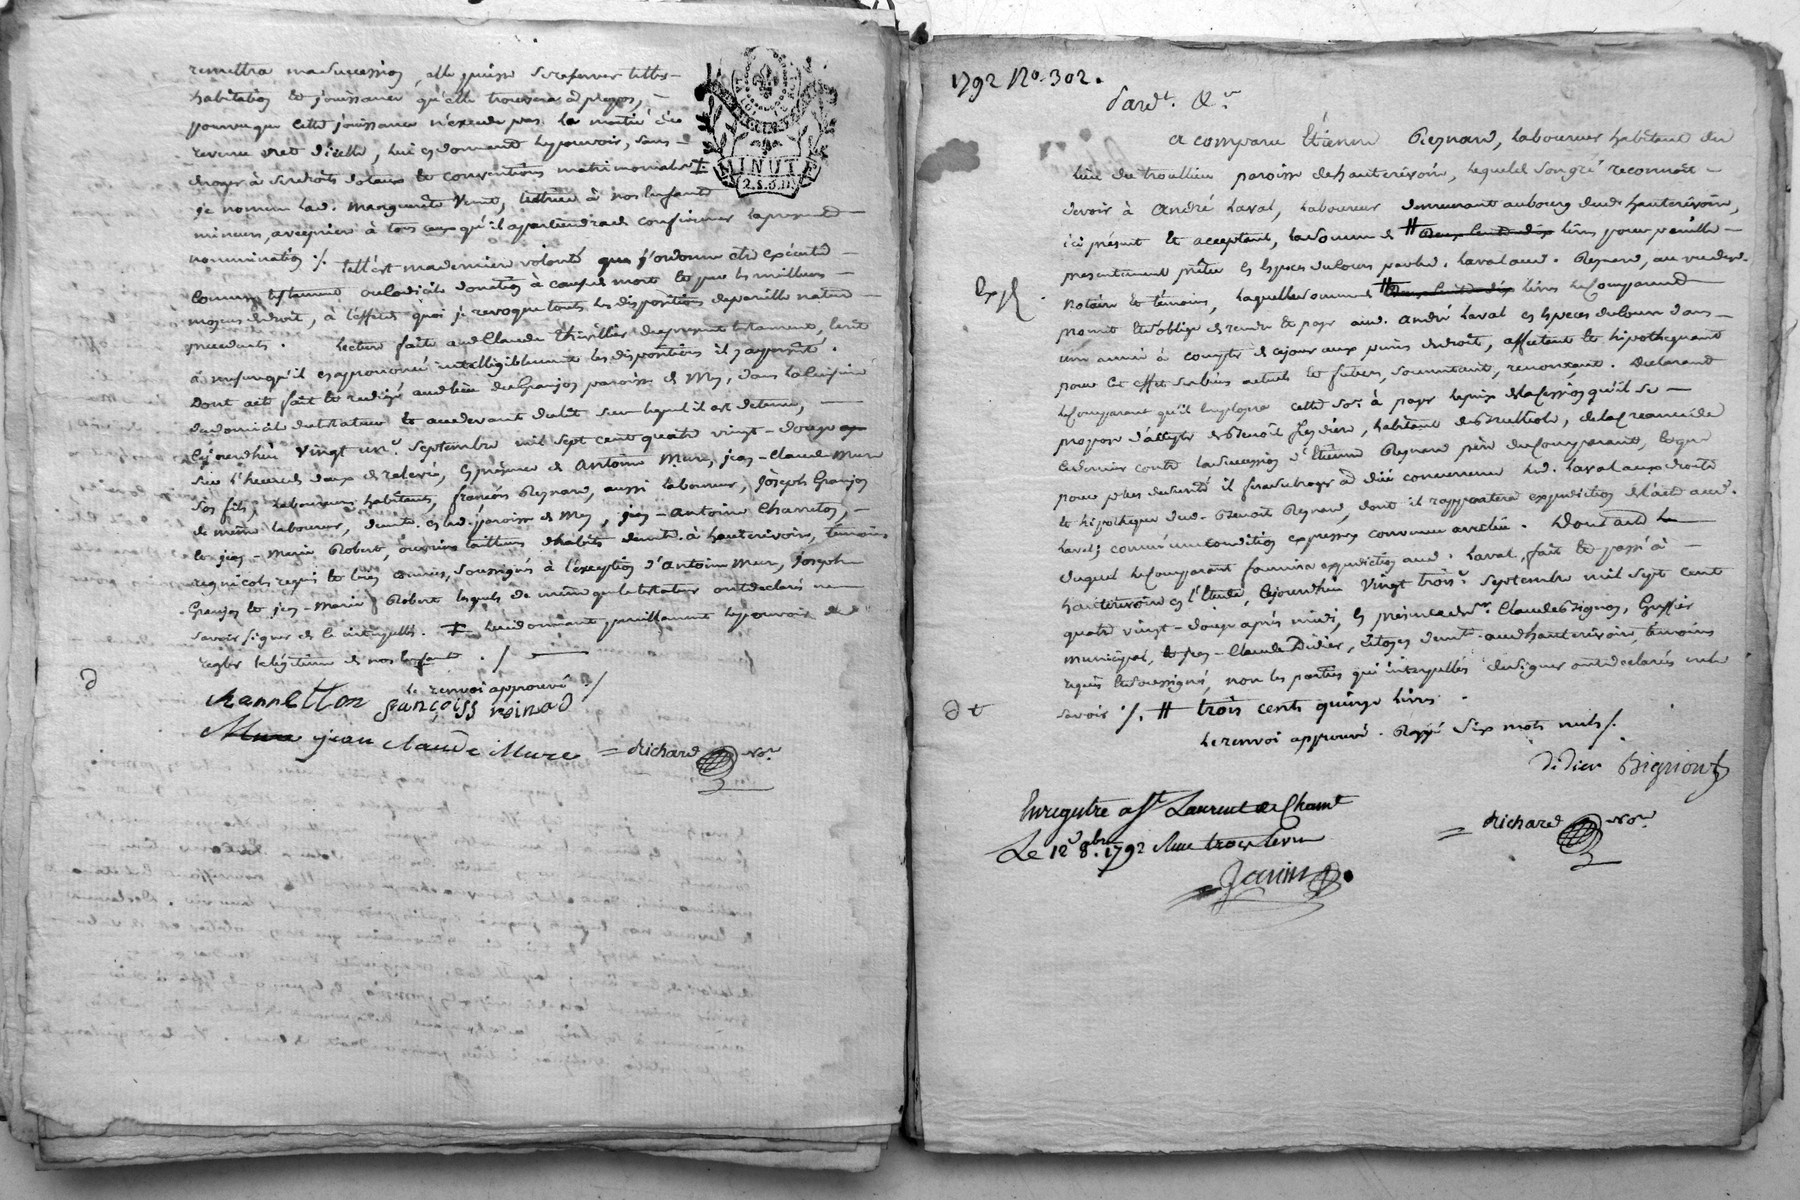 remettra ma succession, elle puisse se reserver telles
habitation et jouissance qu'elle trouvera à propos,
pourvu que cette jouissance n'excede pas la moitié du
revenu net d'icelle, lui en donnant le pouvoir, sans
déroger à ses droits dotaux et conventions matrimoniales
MINUTE
2.S.6.D.
je nomme lad. Marguerite tutrice à nos Enfants
mineurs, avec prière à tous ceux qu'il appartiendra de confirmer la presente
nomination ./. telle est ma derniere volonté que j'ordonne etre exécuté
Comme testament ou codicile donation à cause de mort et par les meilleurs
moyens de droit, à l'effet de quoi je revoque toutes les dispositions de pareille nature
precedents. Lecture faite aud Claude du present testament, écrit
à mesure qu'il en a prononcé intelligiblement les dispositions il y a persisté.
Dont acte fait et rédigé aud lieu de Granjon paroisse de Mey, dans la cuisine
du domicile du testateur et au devant du lit sur lequel il est detenu,
Cejourdhui vingt un.e Septembre mil sept cent quatre vingt-douze
sur l'heure de deux de relevé, En présence de Antoine Mure, jean-Claude Mure
son fils, laboureurs habitants, françois Reynard, aussi laboureur, Joseph Granjon
de même laboureur, demt. en lad. paroisse de Mey, jean-Antoine Charreton,
et jean-Marie Robert, ouvriers tailleurs d'habits demt. à hauterivoire, témoins
regnicols requis et bien connus, soussignés à l'exception d'Antoine Mure, Joseph
Granjon et jean-Marie Robert lesquels de même que le testateur ont declaré ne
savoir signer de ce interpellés. lui donnant pareillement le pouvoir de
regler la légitime de nos Enfants ./.
le renvoi approuvé ./.
charretton françoiss reinad
Mure jean claude Mure = Richard Nore.
1792 No. 302.
Pardt. &a
a comparu Etienne Reynard, laboureur habitant du
lieu du troullieu paroisse de hauterivoire, lequel de son gré reconnoit
devoir à André Laval, laboureur demeurant au bourg dud. hauterivoire,
ici présent et acceptant, la somme de # deux cents dix livres pour pareille
presentement prêtée en Especes de cours par led. Laval aud. Reynard, au vu desd.
Exp.
Notaire et témoins, laquelle somme de # deux cents dix livres le Comparant
promet et s'oblige de rendre et payer aud. André Laval en especes de cours dans
un année à compter de ce jour aux peines de droit, affectant et hipothequant
pour cet effet ses biens actuels et futurs, soumettant, renonçant. Declarant
le Comparant qu'il Employera cette so.e à payer le prix de la cession qu'il se
propose d'accepter de Benoît habitant de de la créance de
ce dernier contre la succession d'Etienne Reynard père du Comparant, lequel
pour plus de sureté il fera subroger à düe concurrence led. Laval aux droits
et hipotheque dud. Benoît Reynard, dont il rapportera expedition de l'acte aud.
Laval; comme condition expresse convenue avec lui. Dont acte
duquel le Comparant fournira expedition aud. Laval, fait et passé à
hauterivoire en l'Etude, Cejourdhui vingt trois.e Septembre mil sept cent
quatre vingt-douze après midi, En présence de sr. Claude Bignon, Greffier
municipal, et jean-Claude Didier, Citoyen demt. aud hauterivoire, temoins
requis et soussignés, non les parties qui interpellés de signer ont declarés ne le
savoir ./. # trois cents quinze livres.
le renvoi approuvé. Rayé six mots nuls ./.
Didier Bigniont
= Richard Nore.
Enregistré a St. Laurent de Cham.t
Le 12 8.bre 1792 trois livres
Janin